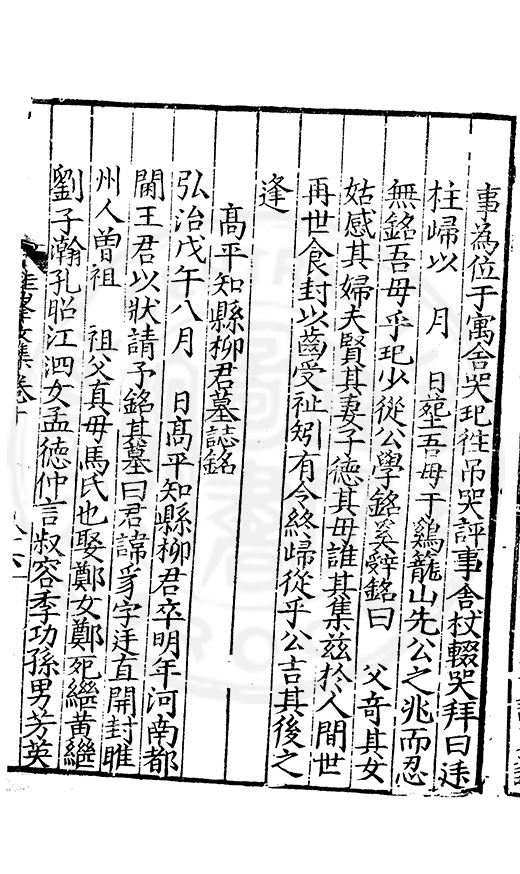 事為位于寓舍哭玘徃吊哭評事舍杖輟哭拜曰逑
柱歸以　月　日塟吾母于鷄籠山先公之兆而忍
無銘吾母乎玘少從公學銘奚辭銘曰　父竒其女
姑感其婦夫賢其妻子德其母誰其集兹於人間世
再世食封以齒受祉矧有今終歸從乎公吉其後之
逢
高平知縣柳君墓誌銘
弘治戊午八月　日髙平知縣柳君卒明年河南都
閫王君以狀請予銘其墓曰君諱豸字廷直開封睢
州人曽祖　祖父真母馬氏也娶鄭女鄭死繼黄繼
劉子瀚孔昭江泗女孟德仲言叔容季功孫男芳英
文集卷十